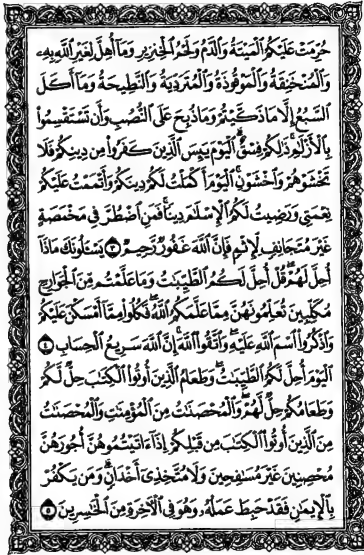 حُرِّمَتْ عَلَيْكُمُ ٱلْمَيْتَةُ وَٱلدَّمُ وَلَحْمُ ٱلْخِنزِيرِ وَمَآ أُهِلَّ لِغَيْرِ ٱللَّهِ بِهِۦ
وَٱلْمُنْخَنِقَةُ وَٱلْمَوْقُوذَةُ وَٱلْمُتَرَدِّيَةُ وَٱلنَّطِيحَةُ وَمَآ أَكَلَ
ٱلسَّبُعُ إِلَّا مَا ذَكَّيْتُمْ وَمَا ذُبِحَ عَلَى ٱلنُّصُبِ وَأَن تَسْتَقْسِمُوا۟
بِٱلْأَزْلَٰمِ ۚ ذَٰلِكُمْ فِسْقٌ ۗ ٱلْيَوْمَ يَئِسَ ٱلَّذِينَ كَفَرُوا۟ مِن دِينِكُمْ فَلَا
تَخْشَوْهُمْ وَٱخْشَوْنِ ۚ ٱلْيَوْمَ أَكْمَلْتُ لَكُمْ دِينَكُمْ وَأَتْمَمْتُ عَلَيْكُمْ
نِعْمَتِى وَرَضِيتُ لَكُمُ ٱلْإِسْلَٰمَ دِينًا ۚ فَمَنِ ٱضْطُرَّ فِى مَخْمَصَةٍ
غَيْرَ مُتَجَانِفٍ لِّإِثْمٍ ۙ فَإِنَّ ٱللَّهَ غَفُورٌ رَّحِيمٌ ٣ يَسْـَٔلُونَكَ مَاذَآ
أُحِلَّ لَهُمْ ۖ قُلْ أُحِلَّ لَكُمُ ٱلطَّيِّبَٰتُ ۙ وَمَا عَلَّمْتُم مِّنَ ٱلْجَوَارِحِ
مُكَلِّبِينَ تُعَلِّمُونَهُنَّ مِمَّا عَلَّمَكُمُ ٱللَّهُ ۖ فَكُلُوا۟ مِمَّآ أَمْسَكْنَ عَلَيْكُمْ
وَٱذْكُرُوا۟ ٱسْمَ ٱللَّهِ عَلَيْهِ ۖ وَٱتَّقُوا۟ ٱللَّهَ ۚ إِنَّ ٱللَّهَ سَرِيعُ ٱلْحِسَابِ ٤
ٱلْيَوْمَ أُحِلَّ لَكُمُ ٱلطَّيِّبَٰتُ ۖ وَطَعَامُ ٱلَّذِينَ أُوتُوا۟ ٱلْكِتَٰبَ حِلٌّ لَّكُمْ
وَطَعَامُكُمْ حِلٌّ لَّهُمْ ۖ وَٱلْمُحْصَنَٰتُ مِنَ ٱلْمُؤْمِنَٰتِ وَٱلْمُحْصَنَٰتُ
مِنَ ٱلَّذِينَ أُوتُوا۟ ٱلْكِتَٰبَ مِن قَبْلِكُمْ إِذَآ ءَاتَيْتُمُوهُنَّ أُجُورَهُنَّ
مُحْصِنِينَ غَيْرَ مُسَٰفِحِينَ وَلَا مُتَّخِذِىٓ أَخْدَانٍ ۗ وَمَن يَكْفُرْ
بِٱلْإِيمَٰنِ فَقَدْ حَبِطَ عَمَلُهُۥ وَهُوَ فِى ٱلْءَاخِرَةِ مِنَ ٱلْخَٰسِرِينَ ٥